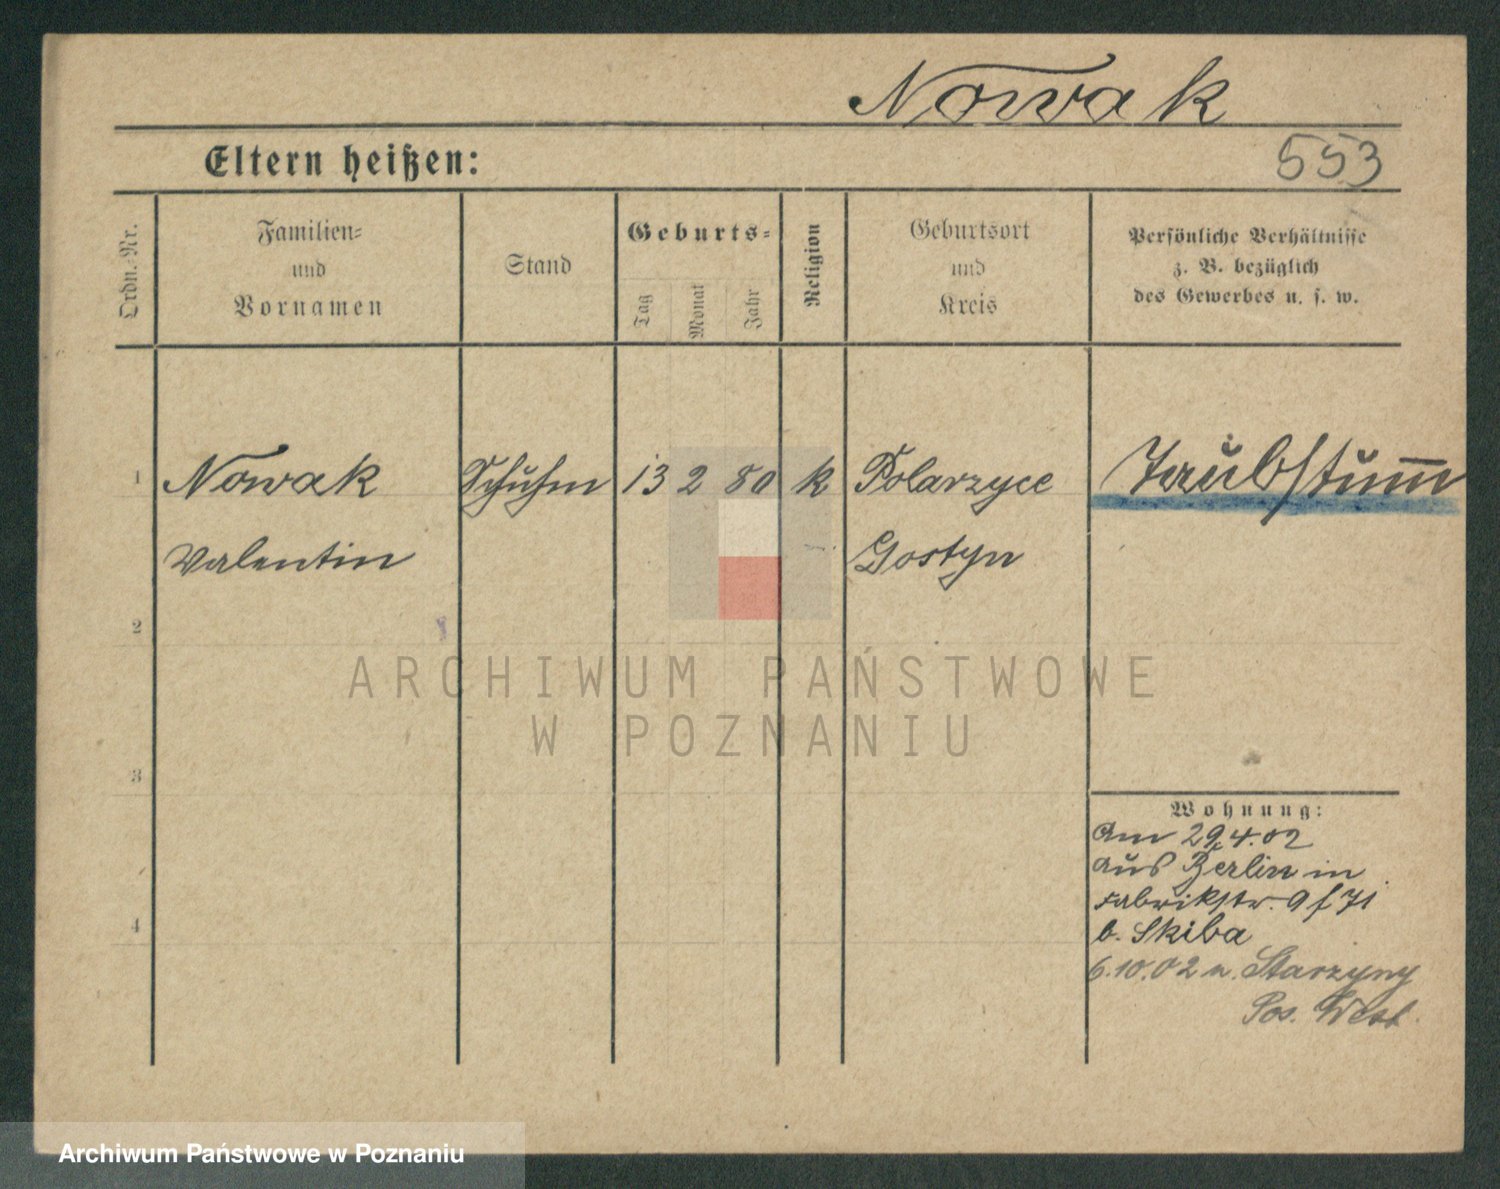 Nowak
Eltern heißen:
553
Ordn.-Nr.
Familien-
und
Vornamen
Stand
Geburts-
Tag
Monat
Jahr
Religion
Geburtsort
und
Kreis
Persönliche Verhältnisse
z. B. bezüglich
des Gewerbes u. s. w.
1 Nowak Schuhm 13 2 80 k Polarzyce Taubstumm
Valentin Gostyn
2
ARCHIWUM PAŃSTWOWE
W POZNANIU
3
Wohnung:
Am 29.4.02
aus Berlin in
Fabrikstr. 9 f 71
4
b. Skiba
6.10.02 n. Starzyny
Pos. West.
Archiwum Państwowe w Poznaniu